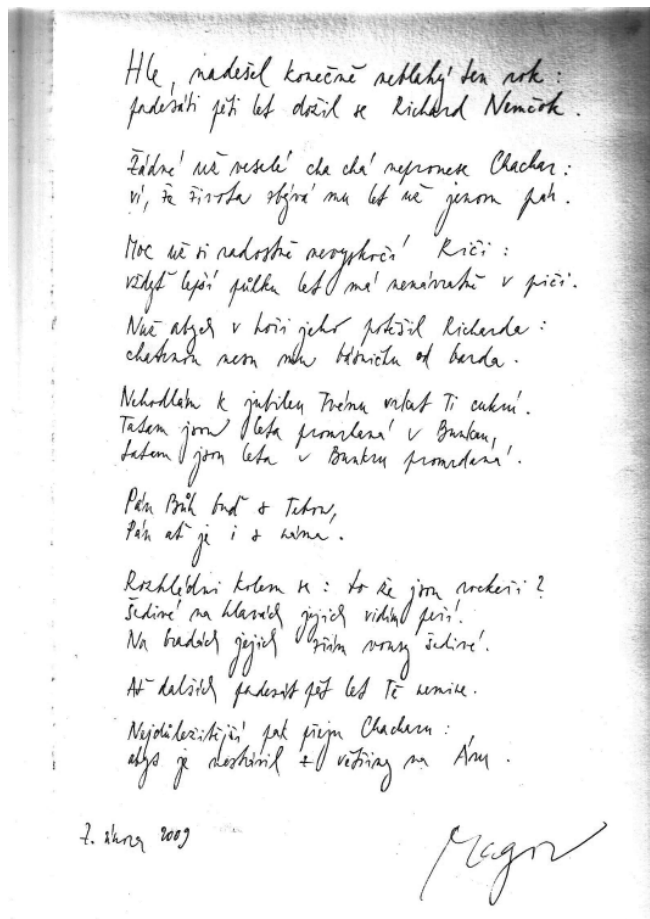 Hle, nadešel konečně neblahý ten rok:
padesáti pěti let dožil se Richard Nemčok.
Žádné už veselé cha chá nepronese Chachar:
ví, že života zbývá mu let už jenom pár.
Moc už si radostně nevyskočí Riči:
vždyť lepší půlku let má nenávratně v piči.
Nuž abych v hoři jeho potěšil Richarda:
chatrnou nesu mu básničku od barda.
Nehodlám k jubileu Tvému vrkat Ti cukrú.
Tatam jsou léta promrdaná v Bunkru,
tatam jsou léta v Bunkru promrdaná.
Pán Bůh buď s Tebou,
Pán ať je i s náma.
Rozhlédni kolem se: to že jsou rockeři?
Šedivé na hlavách jejich vidím peří.
Na bradách jejich zřím vousy šedivé.
Ať dalších padesát pět let Tě nemine.
Nejdůležitější pak přeju Chacharu:
abys je neztrávil z většiny na Áru.
7. února 2009
Magor